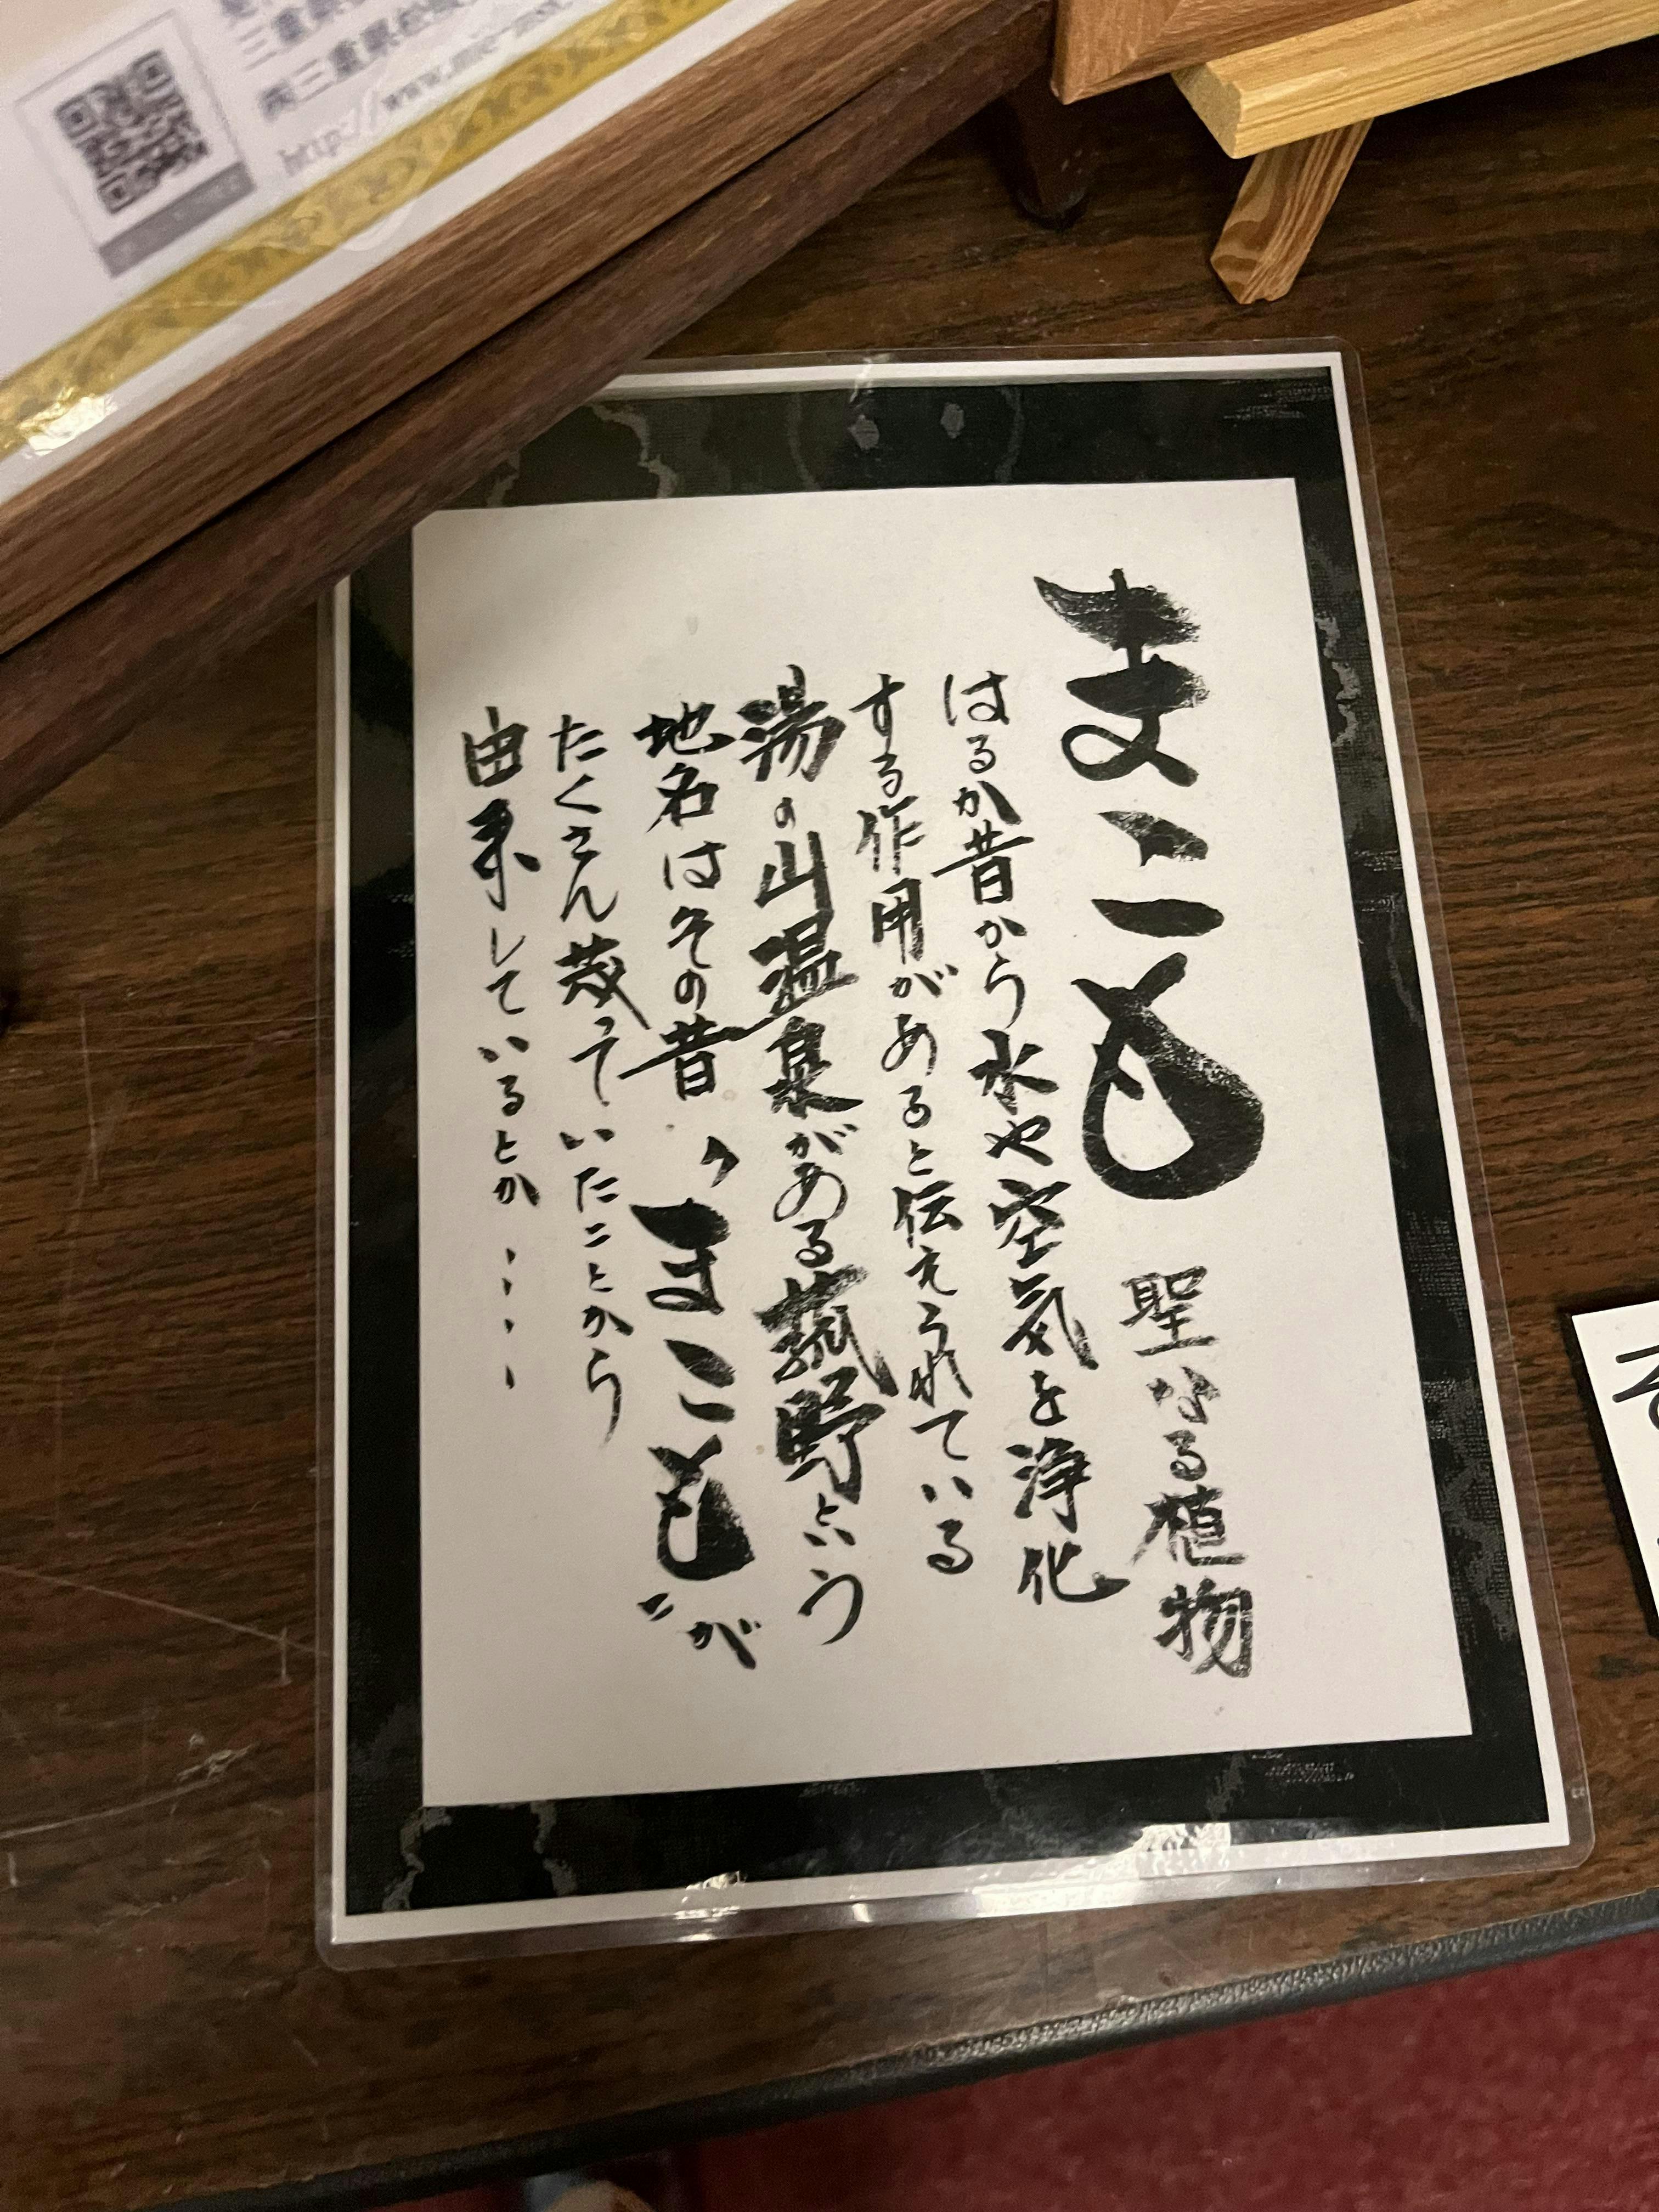 まこも 聖なる植物
はるか昔から水や空気を浄化
する作用があると伝えられている
湯の山温泉がある菰野という
地名はその昔、“まこも”が
たくさん茂っていたことから
由来しているとか・・・・
http://www.